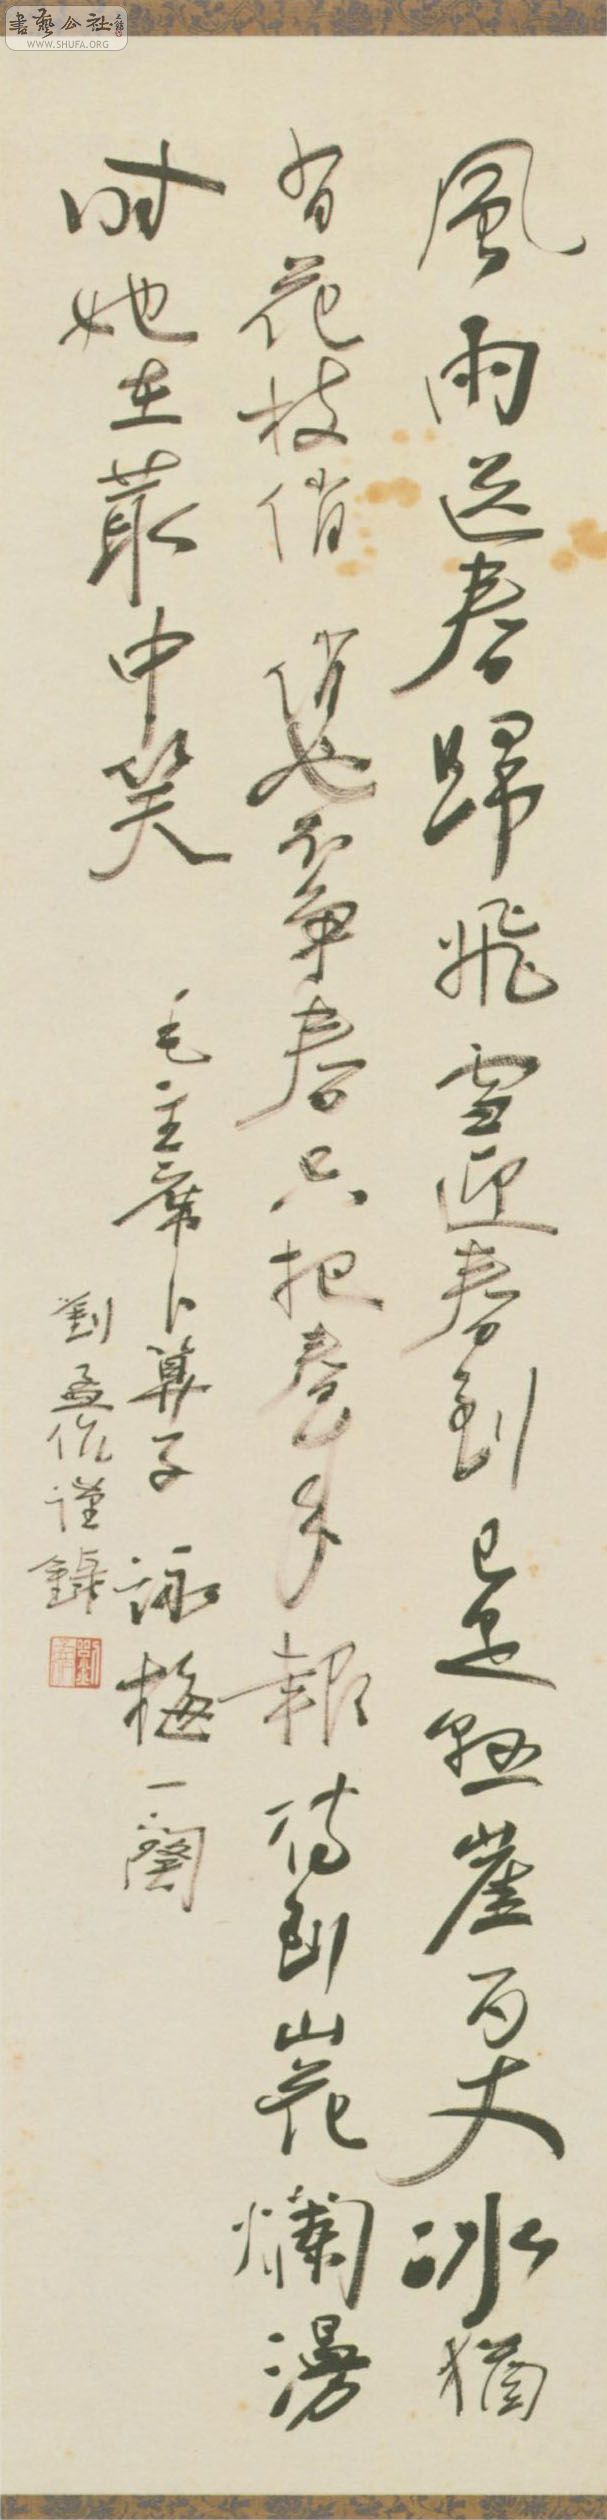 風雨送春歸飛雪迎春到已是懸崖百丈冰猶
有花枝俏俏也不爭春只把春來報待到山花爛漫
时她在叢中笑
毛主席卜算子詠梅一闋
劉孟伉謹錄
書藝公社
WWW.SHUFA.ORG